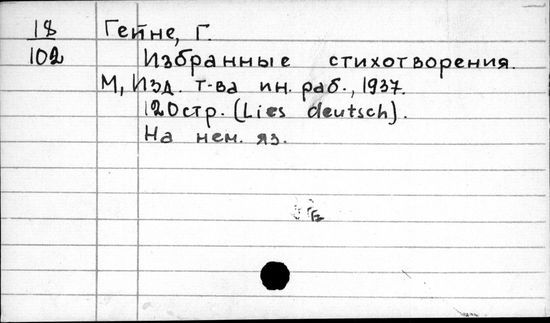 18 Гейне, Г.
102 Избранные стихотворения.
М, Изд. т-ва ин. раб., 1937.
120стр. (Lies deutsch).
На нем. яз.